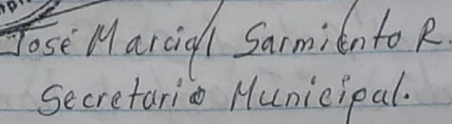 José Marcial Sarmiento R.
Secretario Municipal.